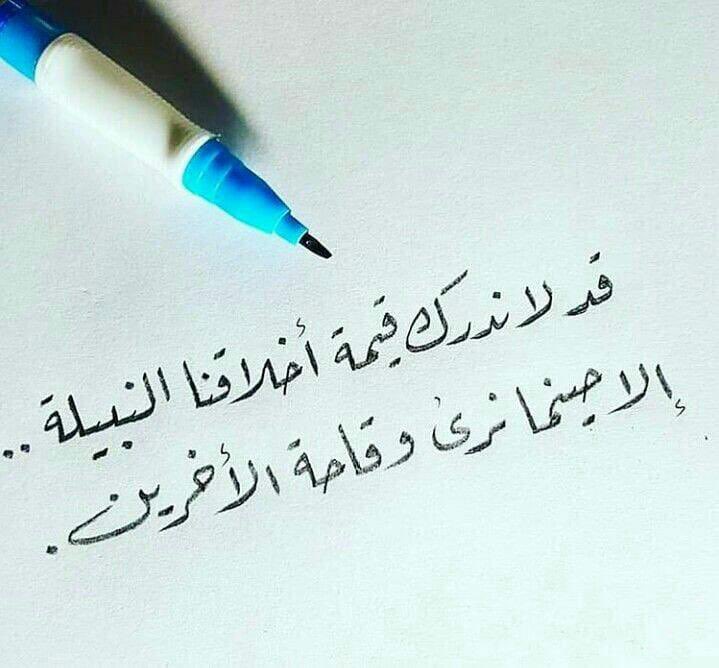 قد لا ندرك قيمة أخلاقنا النبيلة ..
إلا حينما نرى وقاحة الأخرين .